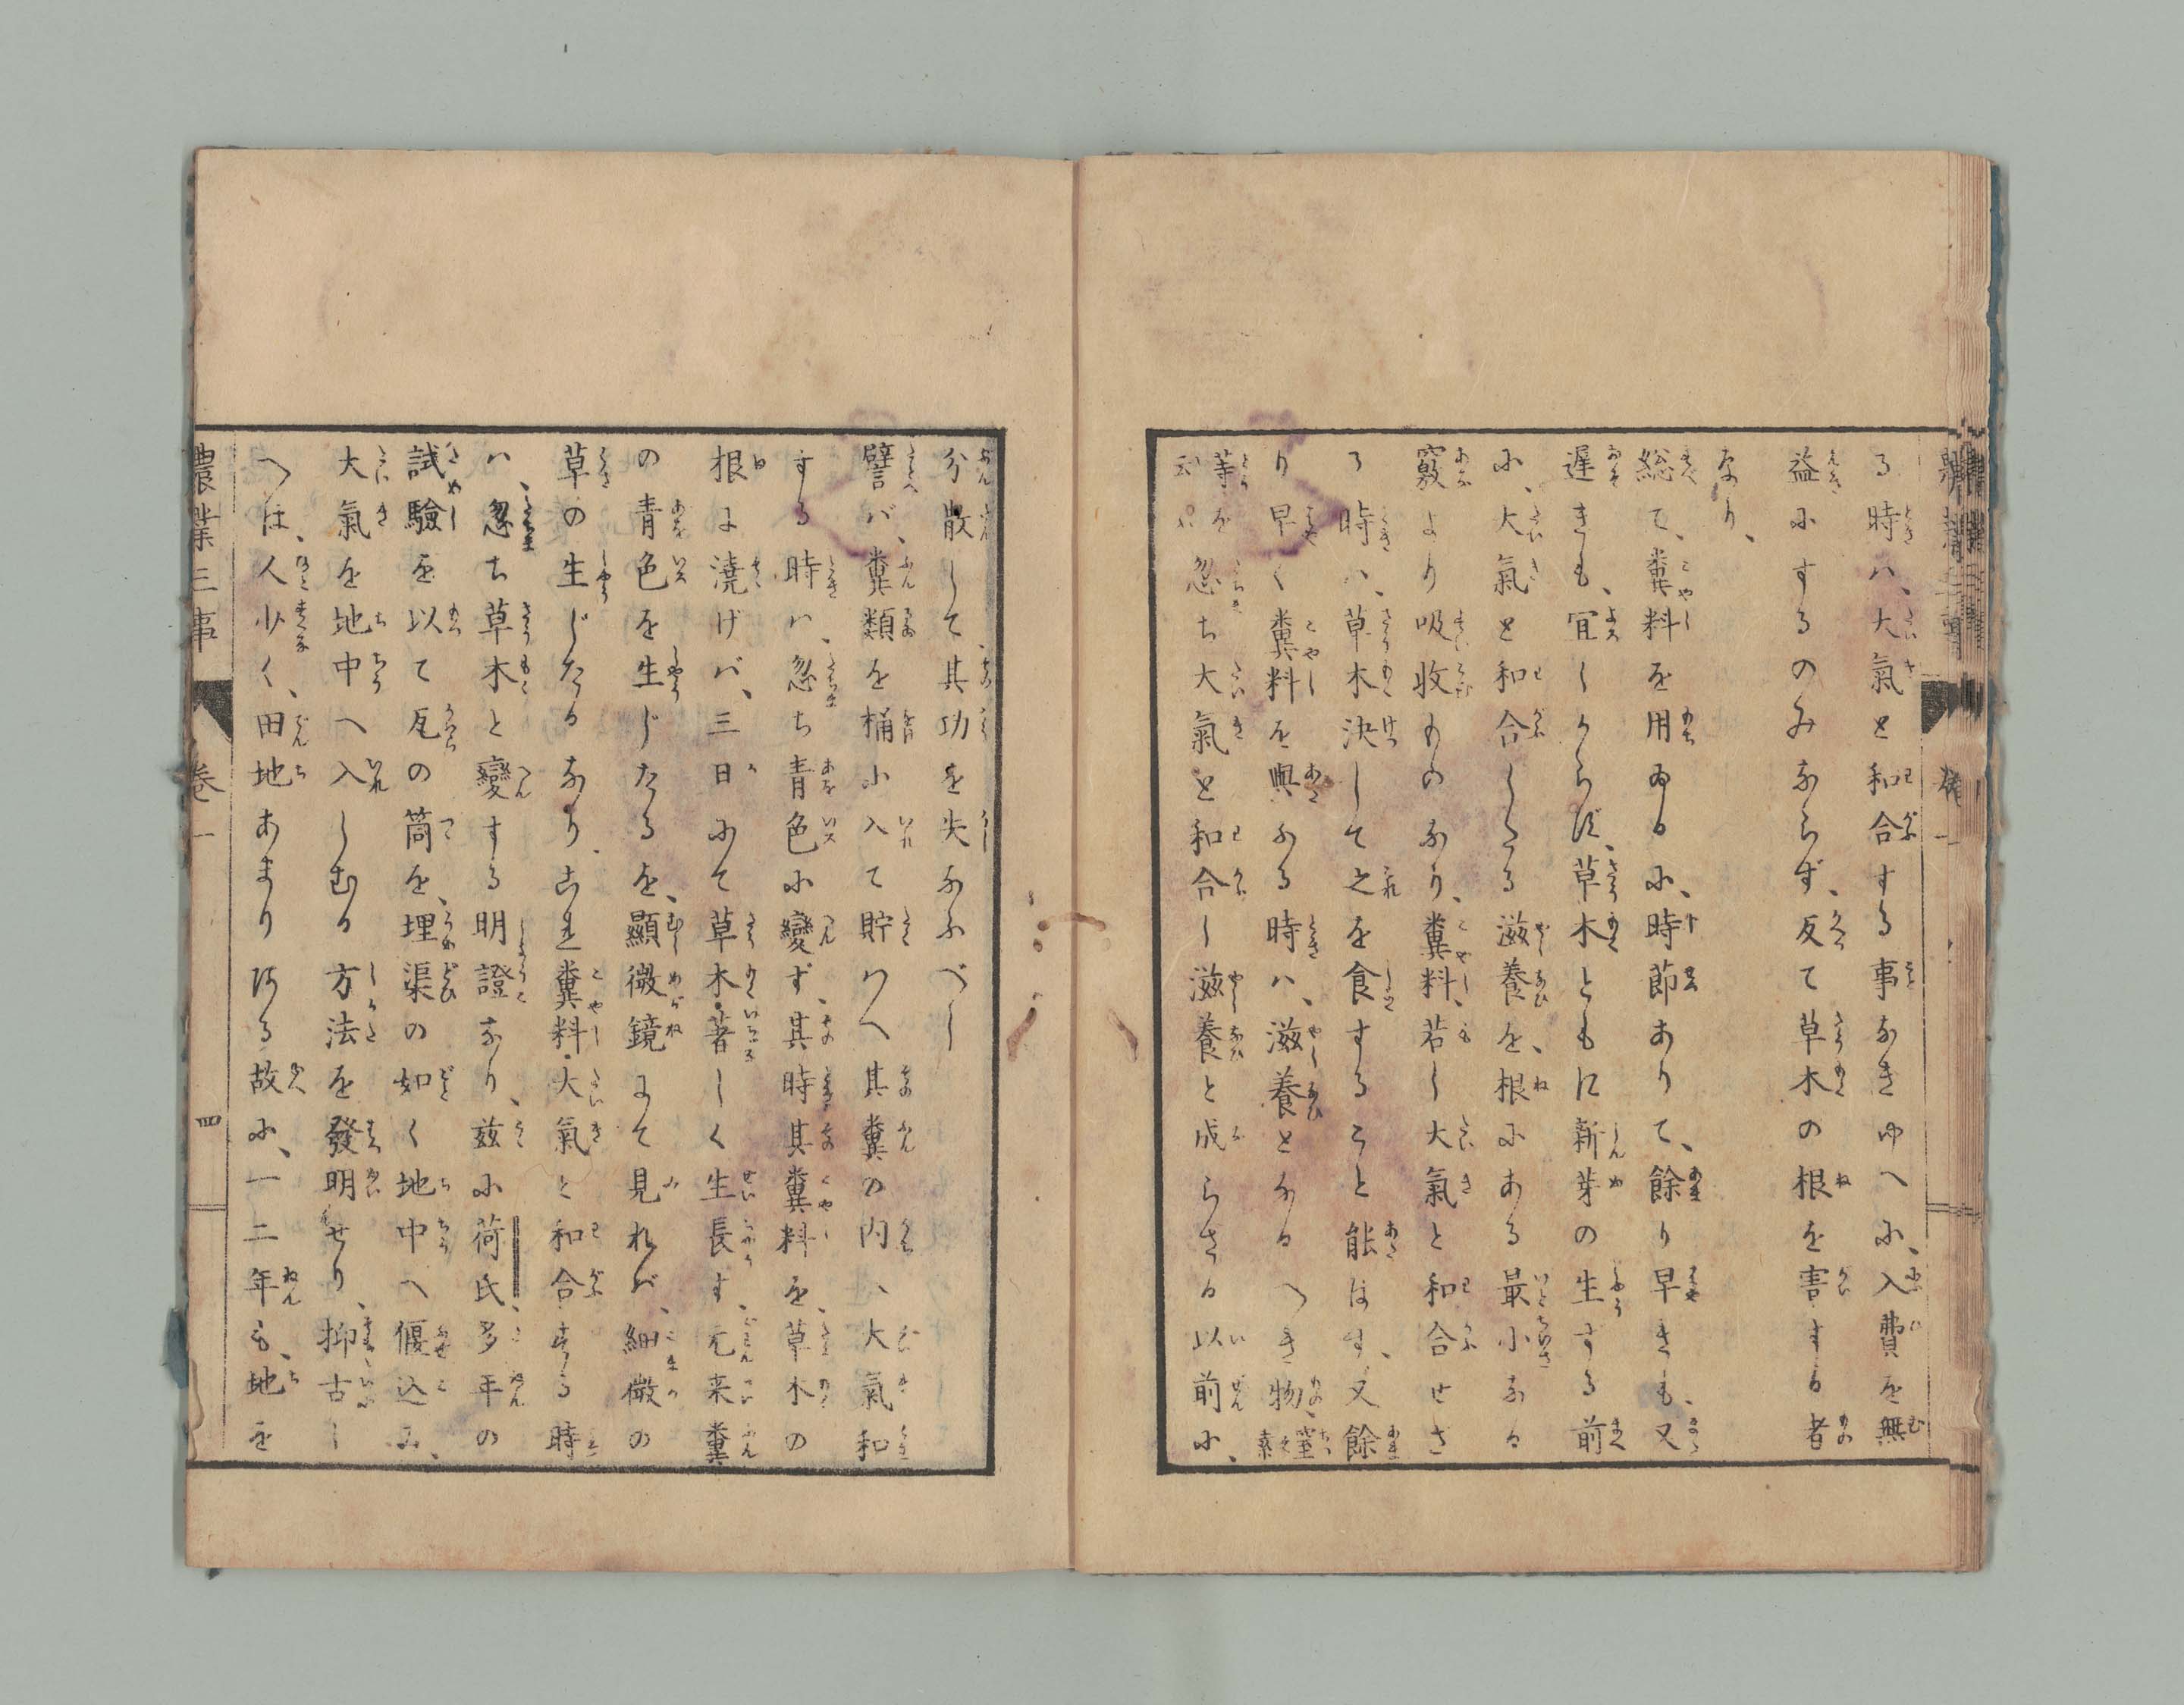 る時ハ、大氣と和合する事なきゆへ小、入費を無
益小するのみならず、反て草木の根を害する者
なり、
総て、糞料を用ゐる小、時節ありて、餘り早きも、又
遅きも、宜しからず、草木ともに新芽の生する前
小、大氣と和合したる滋養を、根小ある最小なる
竅より吸收ものなり、糞料、若し大氣と和合せざ
る時ハ、草木決して之を食すること能はす、又餘
り早く糞料を與ふる時ハ、滋養となるへき物、窒素
等を云ハ忽ち大氣と和合し滋養と成らさる以前小、
分散して、其功を失ふべし
譬バ、糞類を桶小入て貯りへ其糞の内ヘ大氣和
する時ハ、忽ち青色小變ず、其時其糞料を、草木の
根に澆げバ、三日小て草木著しく生長す、元来糞
の青色を生じたるを、顯微鏡にて見れバ、細微の
草の生じたるなり、故に糞料大氣と和合する時
ハ、忽ち草木と變する明證なり、茲小荷氏、多年の
試驗を以て瓦の筒を、埋渠の如く地中へ偃込み、
大氣を地中へ入しむる方法を發明せり、抑古し
へは、人少く、田地あまりある故小、一二年も、地を
農業三事
巻一
四